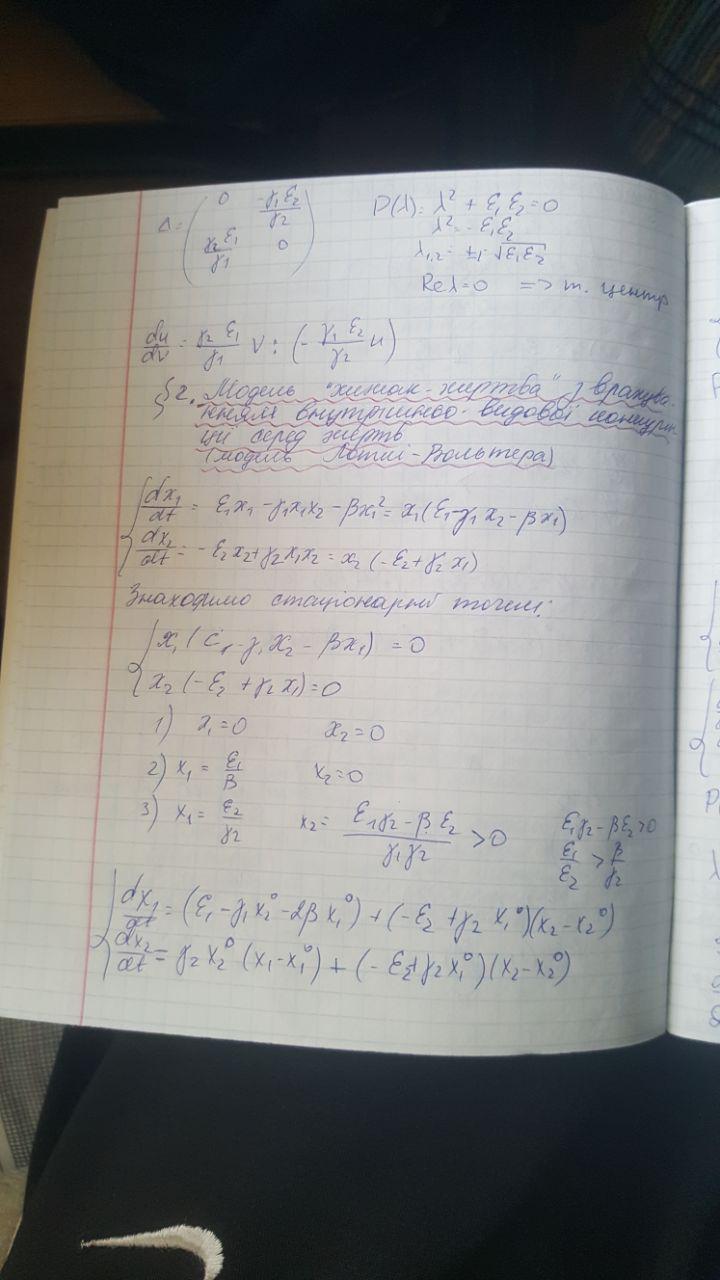 A = ( 0  -γ₁ε₂/γ₂ ; γ₂ε₁/γ₁  0 )
P(λ): λ² + ε₁ε₂ = 0
λ² = -ε₁ε₂
λ₁,₂ = ±i√ε₁ε₂
Reλ=0 => т. центр
du/dv = γ₂ε₁/γ₁ v : (-γ₁ε₂/γ₂ u)
§2. Модель "хижак-жертва" з врахува-
нням внутрішньо-видової конкурен-
ції серед жертв
(модель Лотки-Вольтера)
dx₁/dt = ε₁x₁ - γ₁x₁x₂ - βx₁² = x₁(ε₁-γ₁x₂-βx₁)
dx₂/dt = -ε₂x₂+γ₂x₁x₂ = x₂(-ε₂+γ₂x₁)
Знаходимо стаціонарні точки:
x₁(ε₁-γ₁x₂-βx₁) = 0
x₂(-ε₂+γ₂x₁)=0
1) x₁=0 x₂=0
2) x₁ = ε₁/β x₂=0
3) x₁= ε₂/γ₂ x₂= (ε₁γ₂-βε₂)/(γ₁γ₂) >0
ε₁γ₂-βε₂>0
ε₁/ε₂ > β/γ₂
dx₁/dt = (ε₁-γ₁x₂⁰-2βx₁⁰) + (-ε₂+γ₂x₁⁰)(x₂-x₂⁰)
dx₂/dt = γ₂x₂⁰(x₁-x₁⁰) + (-ε₂+γ₂x₁⁰)(x₂-x₂⁰)